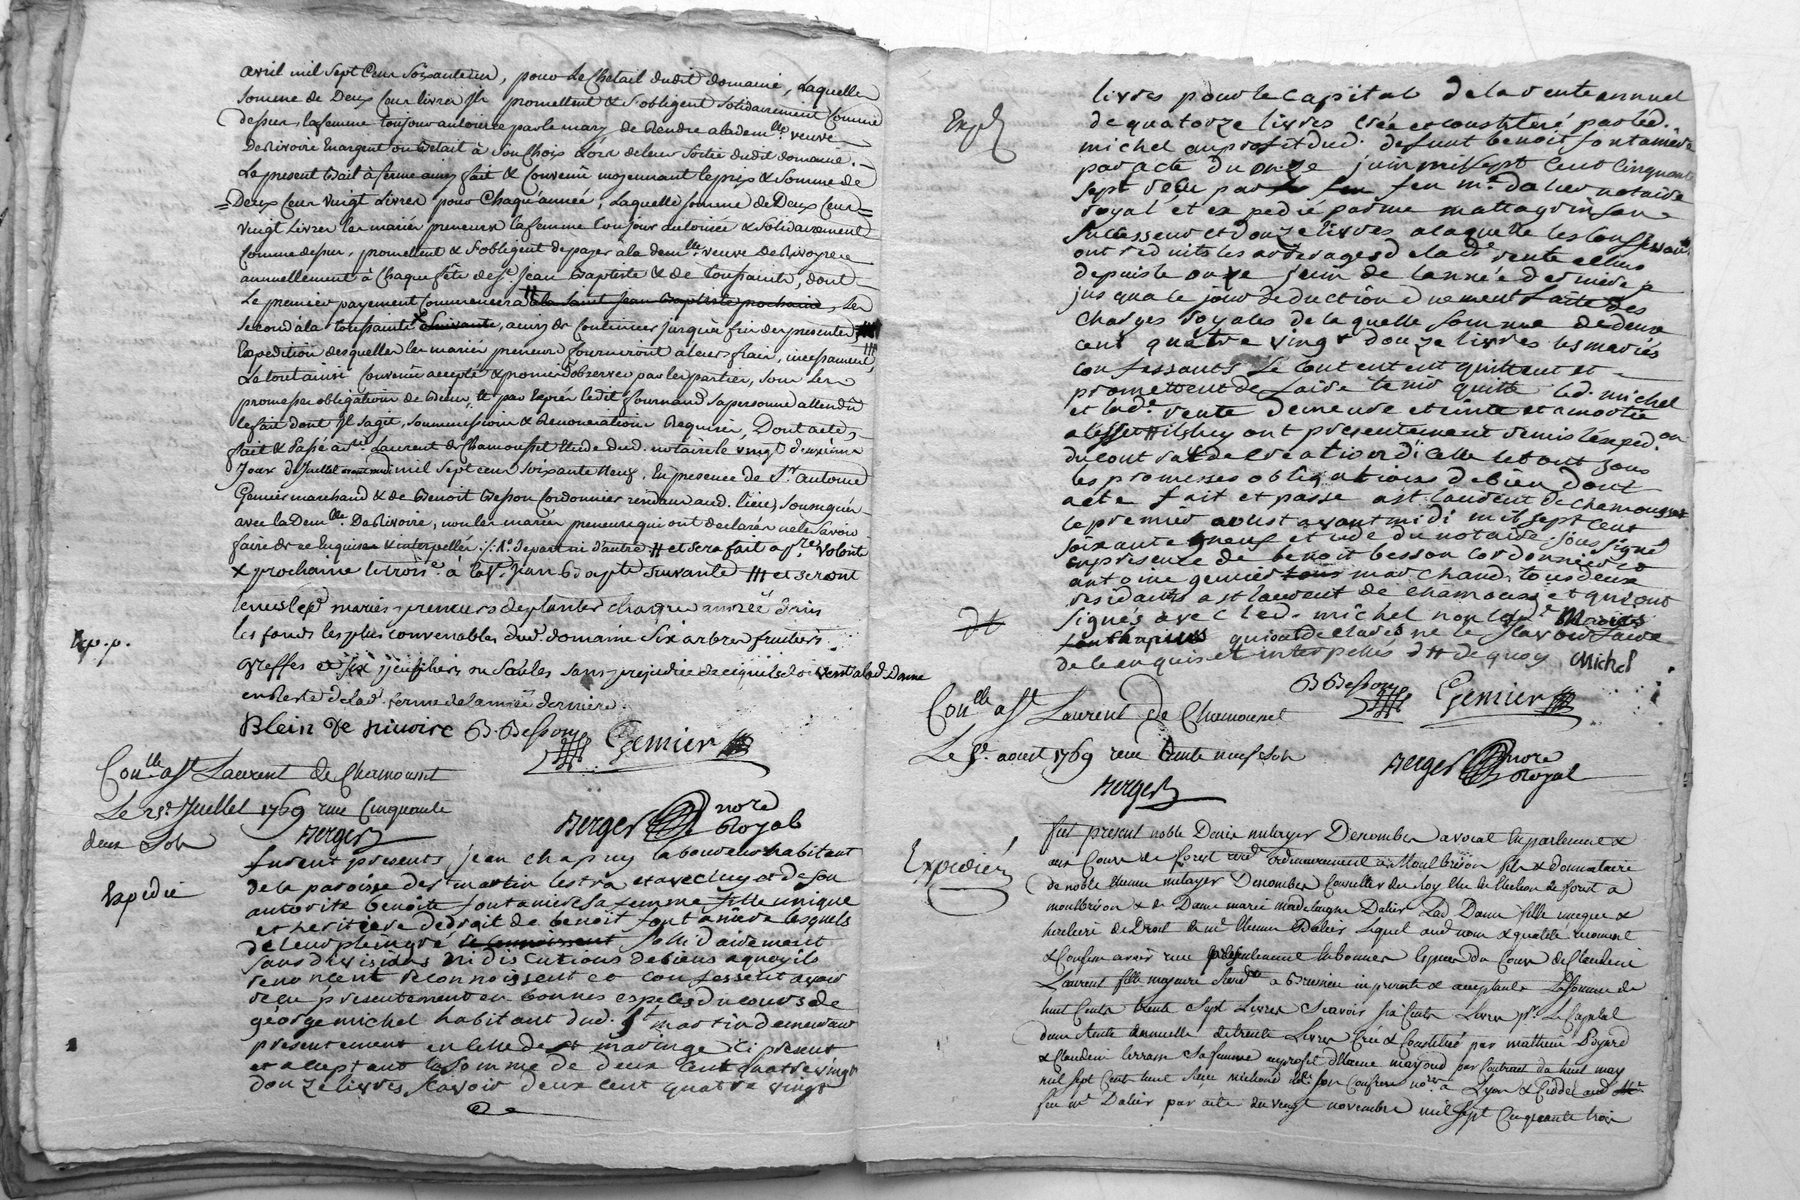 avril mil sept Cent Soixante un, pour Le Chetail dudit domaine, Laquelle
somme de Deux Cent livres ils promettent & s'obligent solidairement Comme
dessus, la femme toujour autorisée par le mary de Rendre a lade mlle veuve
DeRivoire En argent ou Betail à Son Choix Lors de leur Sortie dudit domaine.
Le present Bail à ferme ainsy fait & Convenu moyennant le prix & Somme de
Deux Cent vingt Livres pour Chaqu'année, Laquelle somme de Deux Cent
vingt Livres les mariés preneurs la femme toujour autorisée & solidairement
Comme dessus, promettent & s'obligent de payer à la dem lle veuve DeRivoyre
annuellement à Chaque fête de St jean Baptiste & de toussaints, dont
Le premier payement Commencera # a la Saint Jean Baptiste prochaine, Le
Second à la toussaints X Suivante, ainsy de Continuer jusqu'a fin des presentes, ###
Expedition desquelles les mariés preneurs fourniront a leurs frais, incessament,
Le tout ainsi Convenu accepté & promis d'observer par les parties, sous les
promesses obligations de Biens, & par Exprés ledit fournand sa personne attendû
le fait dont Il sagit, soummissions & Renonciations Requises, Dont acte,
fait & Passé a St. Laurent de Chamousset Etude dud. notaire le vingt deuxieme
Jour de Juillet mil sept cent Soixante Neuf. En presence de Sr. antoine
Gemier marchand & de Benoit Besson Cordonnier residans aud. lieu, Soussignés
avec la Demlle. DeRivoire, non les mariés preneurs qui ont declarés ne le Savoir
faire de ce Enquis & interpellés ./. 1° depart ni d'autre # et sera fait a
X prochaine le trois e. à la St. Jean Bapte suivante ### et seront
tenus les d mariés preneurs de planter chaque année dans
les fonds les plus convenables dud. domaine Six arbres fruitiers
greffes et six ou Saules sans prejudice de ce qui doivent a lad. Dame
en Reste de lad. ferme de l'année derniere.
Xp. p.
Blein de Rivoire B Besson Gemier
Conlle. a St Laurent de Chamousset
Le 25e Juillet 1769 reçu Cinquante
deux Sols Berger
Berger nore Royal
Expedié
furent presents jean chapuy laboureur habitant
de la paroisse de st martin lestra et avec luy et de son
autorité benoite fontaniere sa femme fille unique
et heritiere de droit de benoit fontaniere lesquels
de leur plein gré se connoissent sollidairement
sans divisions ni discutions de biens a quoy ils
renoncent reconnoissent et confessent avoir
reçu presentement en bonnes espeçes du cours de
george michel habitant dud. st martin demeurant
presentement en celle de st maringe ici present
et acceptant la somme de deux cent quatre vingt
douze livres scavoir deux cent quatre vingt
Expd
livres pour le capital de la rente annuel
de quatorze livres créé et constitué par led.
michel au profit dud. defunt benoit fontaniere
par acte du onze juin mil sept cent cinquante
sept reçu par feu me. dalier notaire
royal et expedié par me mattagrin son
successeur et douze livres a laquelle les confessants
ont reduits les arderages de la de. rente echus
depuis le onze juin de l'année derniere
jusqua le jour deduction dument faite des
charges royales de la quelle somme de deux
cent quatre vingt douze livres les mariés
confessants se contentent quittent et
promettent de faire tenir quitte led. michel
et lade. rente demeure eteinte et amortie
a l'effet # ils luy ont presentement remis l'exped.on
du contrat de creation dicelle le tout sous
les promesses obligations de bien dont
acte fait et passé a st laurent de chamousset
le premier aoust avant midi mil sept cent
soixante neuf etude du notaire soussigné
en presence de benoit besson cordonnier et
antoine gemier marchand tous deux
residants a st laurent de chamousset qui ont
signés avec led. michel non les d. mariés
qui ont declarés ne le scavoir faire
de ce enquis et interpellés # de quoy Michel
#
B Besson Gemier
Conlle a St Laurent de Chamousset
Le 8e. aout 1769 reçu trente neuf sols
Berger
Berger nore Royal
Expedié
fut present noble Denis mulayer Desombes avocat En parlement &
aux Cours de forest resd. ordinairement a Montbrison fils & donnataire
de noble Etienne mulayer Desombes Conseiller du Roy Elu En l'Election de forest a
montbrison & de Dame marie madelaigne Dalier Lad. Dame fille unique &
heritiere de Droit de me. Etienne Dalier Lequel aud. nom & qualité reconnoit
& Confesse avoir reçu presentement En bonnes Especes du Cours de Claudine
Laurent fille majeure resid. te a presente & acceptante La Somme de
huit Cents trente Sept Livres Scavoir Six Cents Livres pr. Le Capital
d'une rente annuelle de trente Livres Créé & Constitué par matthieu Poyard
& Claudine terrasse Sa femme au profit d'Etienne mayoud par Contrat du huit may
mil sept Cent huit no.re a Lyon & Cedée aud.
feu me Dalier par acte du vingt novembre mil Sept Cinquante trois